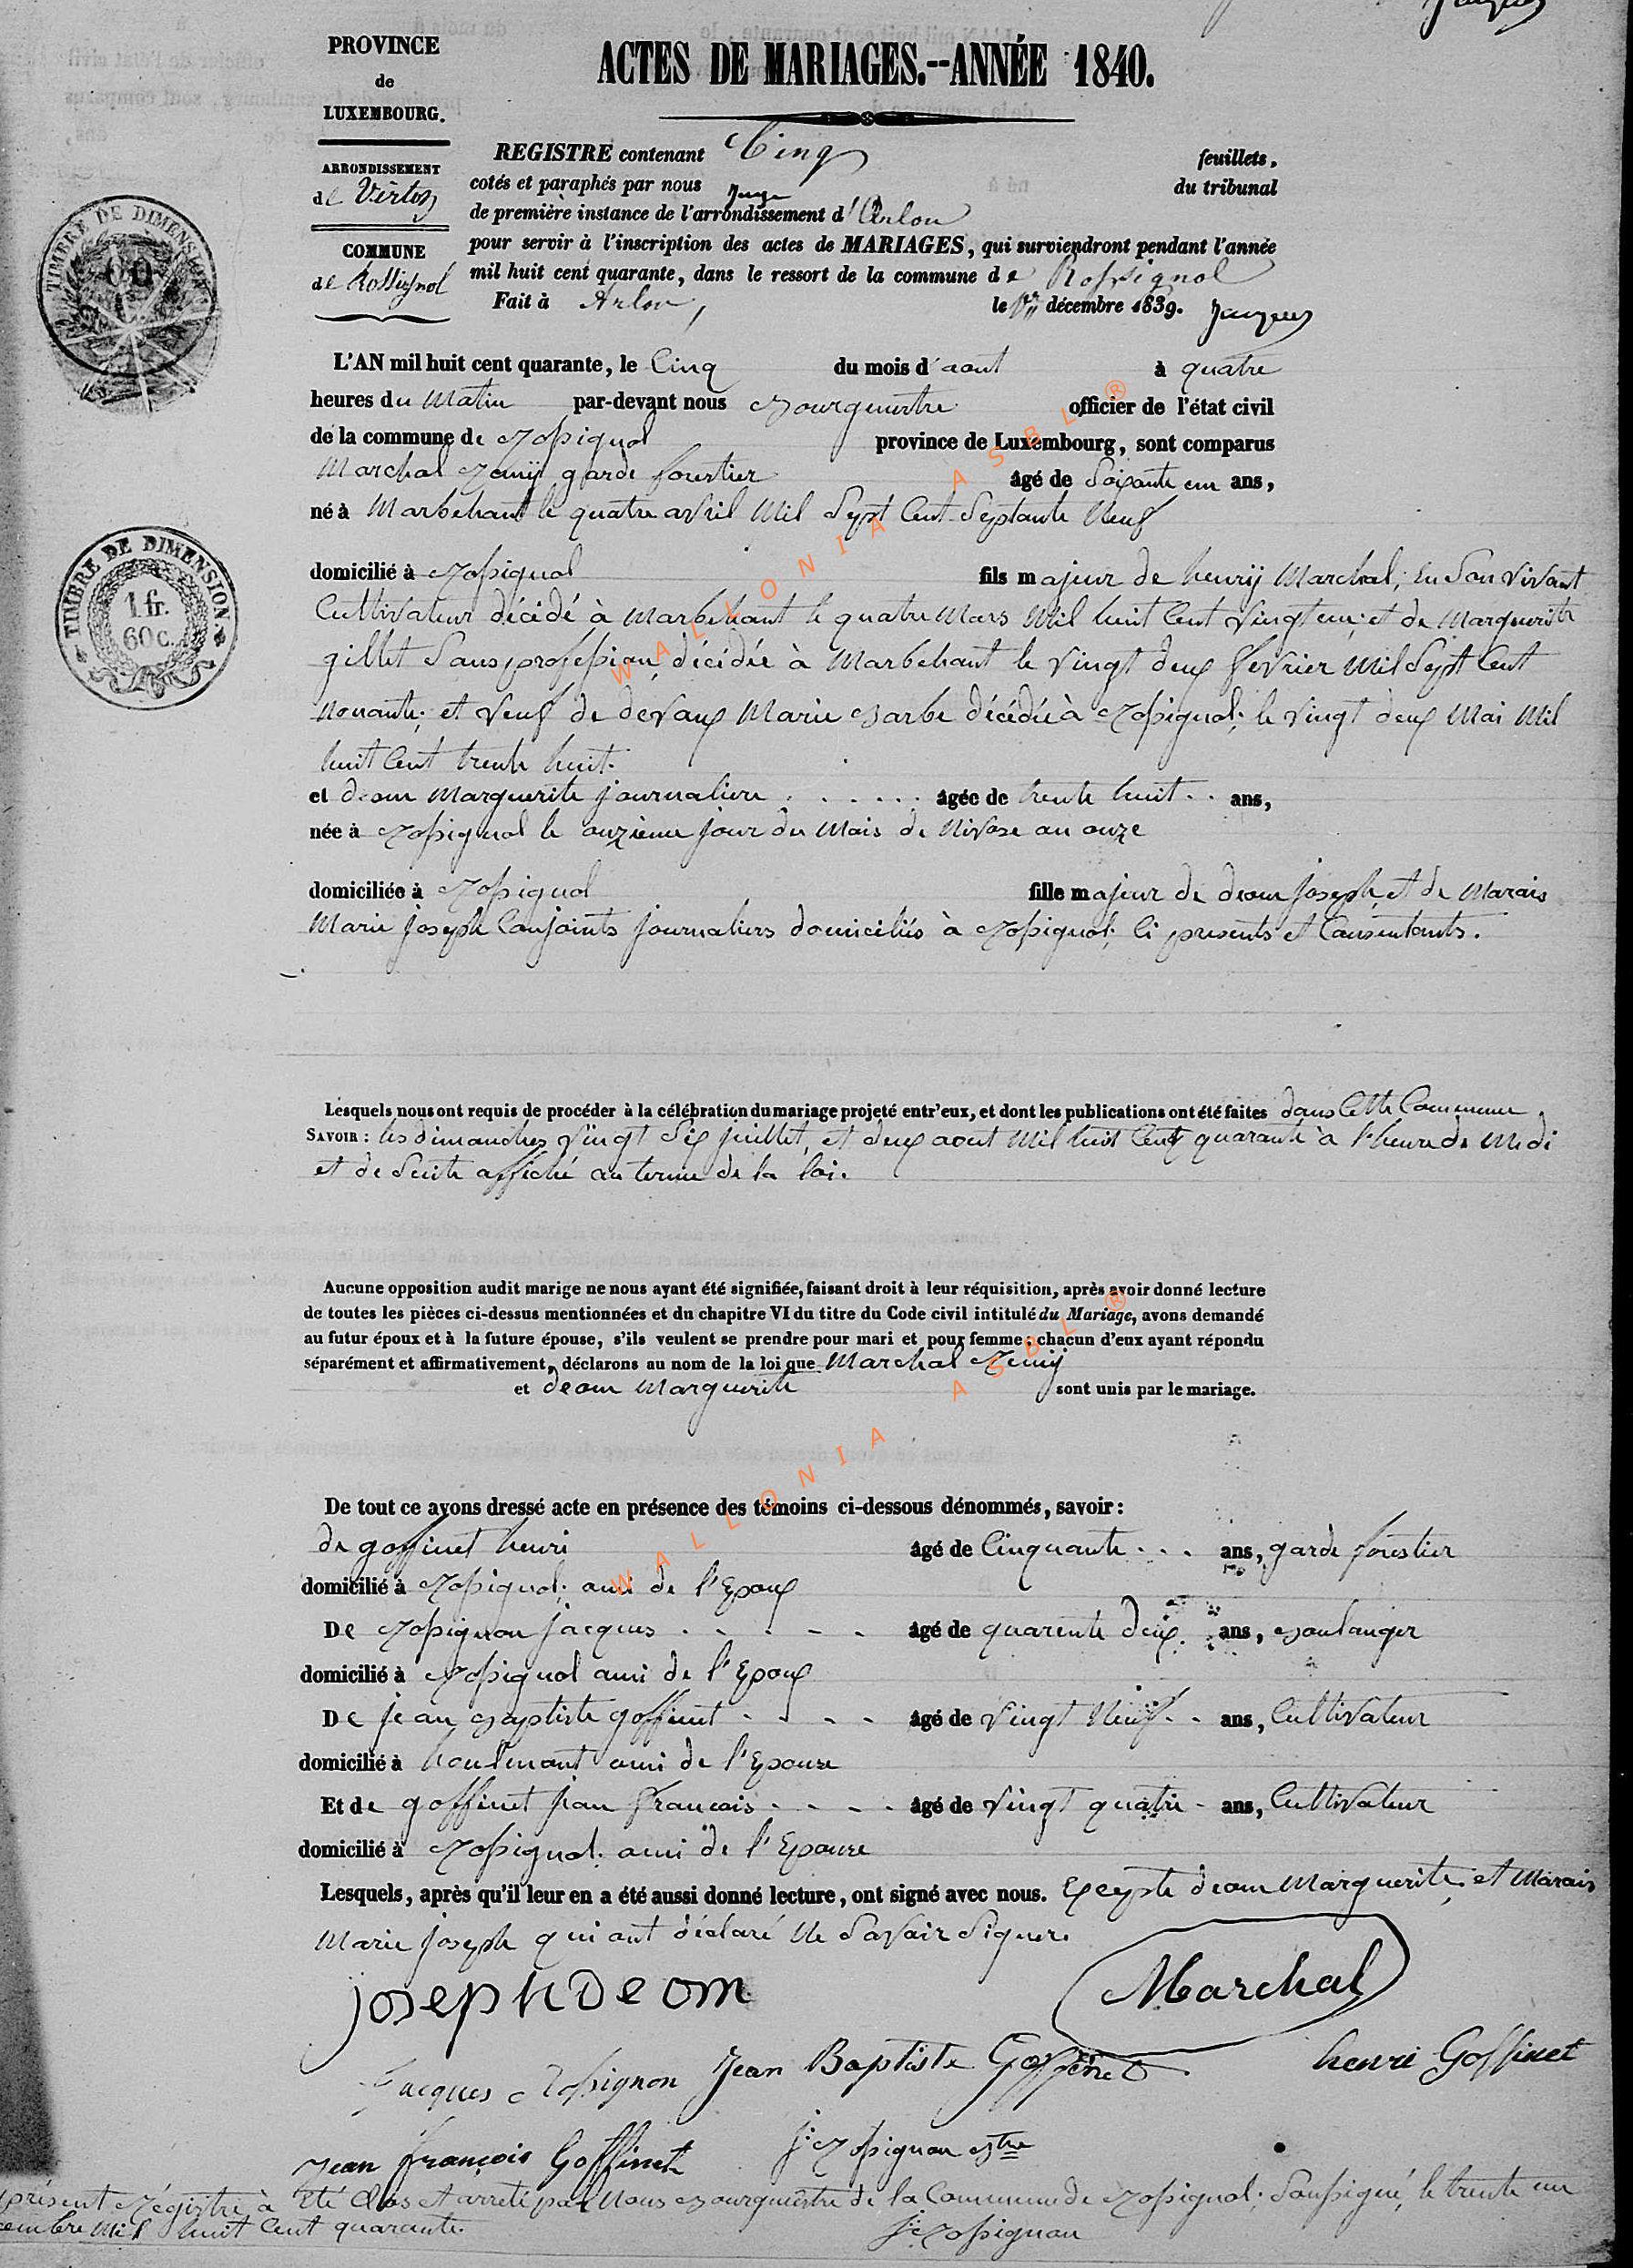 Jacques
PROVINCE
de
LUXEMBOURG.
ARRONDISSEMENT
de Virton
COMMUNE
de Rossignol
ACTES DE MARIAGES.--ANNÉE 1840.
REGISTRE contenant Cinq feuillets,
cotés et paraphés par nous Juge du tribunal
de première instance de l'arrondissement d'Arlon
pour servir à l'inscription des actes de MARIAGES, qui surviendront pendant l'année
mil huit cent quarante, dans le ressort de la commune de Rossignol
Fait à Arlon, le décembre 1839. Jacques
TIMBRE DE DIMENSION
TIMBRE DE DIMENSION
1 fr.
60 c.
L'AN mil huit cent quarante, le Cinq du mois d'aout à quatre
heures du Matin par-devant nous Bourguestre officier de l'état civil
de la commune de Rossignol province de Luxembourg, sont comparus
Marchal Remij garde forestier âgé de Soixante un ans,
né à Marbehant le quatre avril Mil Sept Cent Septante Neuf
domicilié à Rossignol fils majeur de henrij Marchal, En Son vivant
Cultivateur décédé à Marbehant le quatre Mars Mil huit Cent vingt un; et de Marguerite
gillet Sans profession, décédée à Marbehant le vingt deux fevrier Mil Sept Cent
Nonante; et veuf de devaux Marie Barbe décédée à Rossignol; le vingt deux Mai Mil
huit Cent trente huit.
et deom Marguerite journaliere . . . . . âgée de trente huit . . ans,
née à Rossignol le onzieme jour du Mois de Nivose an onze
domiciliée à Rossignol fille majeur de deom joseph et de Marais
Marie joseph Conjoints journaliers domiciliés à Rossignol; Ci presents et Consentants.
Lesquels nous ont requis de procéder à la célébration du mariage projeté entr'eux, et dont les publications ont été faites dans Cette Commune
SAVOIR : les dimanches vingt Six juillet, et deux aout Mil huit Cent quarante à l'heure de Midi
et de Suite affiché au terme de la loi.
Aucune opposition audit marige ne nous ayant été signifiée, faisant droit à leur réquisition, après avoir donné lecture
de toutes les pièces ci-dessus mentionnées et du chapitre VI du titre du Code civil intitulé du Mariage, avons demandé
au futur époux et à la future épouse, s'ils veulent se prendre pour mari et pour femme; chacun d'eux ayant répondu
séparément et affirmativement, déclarons au nom de la loi que Marchal Remij
et deom Marguerite sont unis par le mariage.
De tout ce avons dressé acte en présence des témoins ci-dessous dénommés, savoir :
de goffinet henri âgé de Cinquante . . . ans, garde forestier
domicilié à Rossignol; ami de l'Epoux
De Rossignon jacques . . . . . âgé de quarente deux . ans, Boulanger
domicilié à Rossignol ami de l'Epoux
De jean Baptiste goffinet . . . . âgé de vingt Neuf . . ans, Cultivateur
domicilié à houdemont ami de l'Epouse
Et de goffinet jean francois . . . . âgé de vingt quatre . ans, Cultivateur
domicilié à Rossignol. ami de l'Epouse
Lesquels, après qu'il leur en a été aussi donné lecture, ont signé avec nous. Excepte deom Marguerite et Marais
Marie joseph qui ont déclaré Ne Savoir Signer.
joseph Deom Marchal
Jacques Rossignon Jean Baptiste Goffinet henri Goffinet
Jean françois Goffinet J: Rossignon Btre
présent Régistre à Eté Clos et arreté par Nous Bourguestre de la Commune de Rossignol; Soussigné, le trente un
cembre Mil huit Cent quarante. J: Rossignon
WALLONIA ASBL ®
WALLONIA ASBL ®